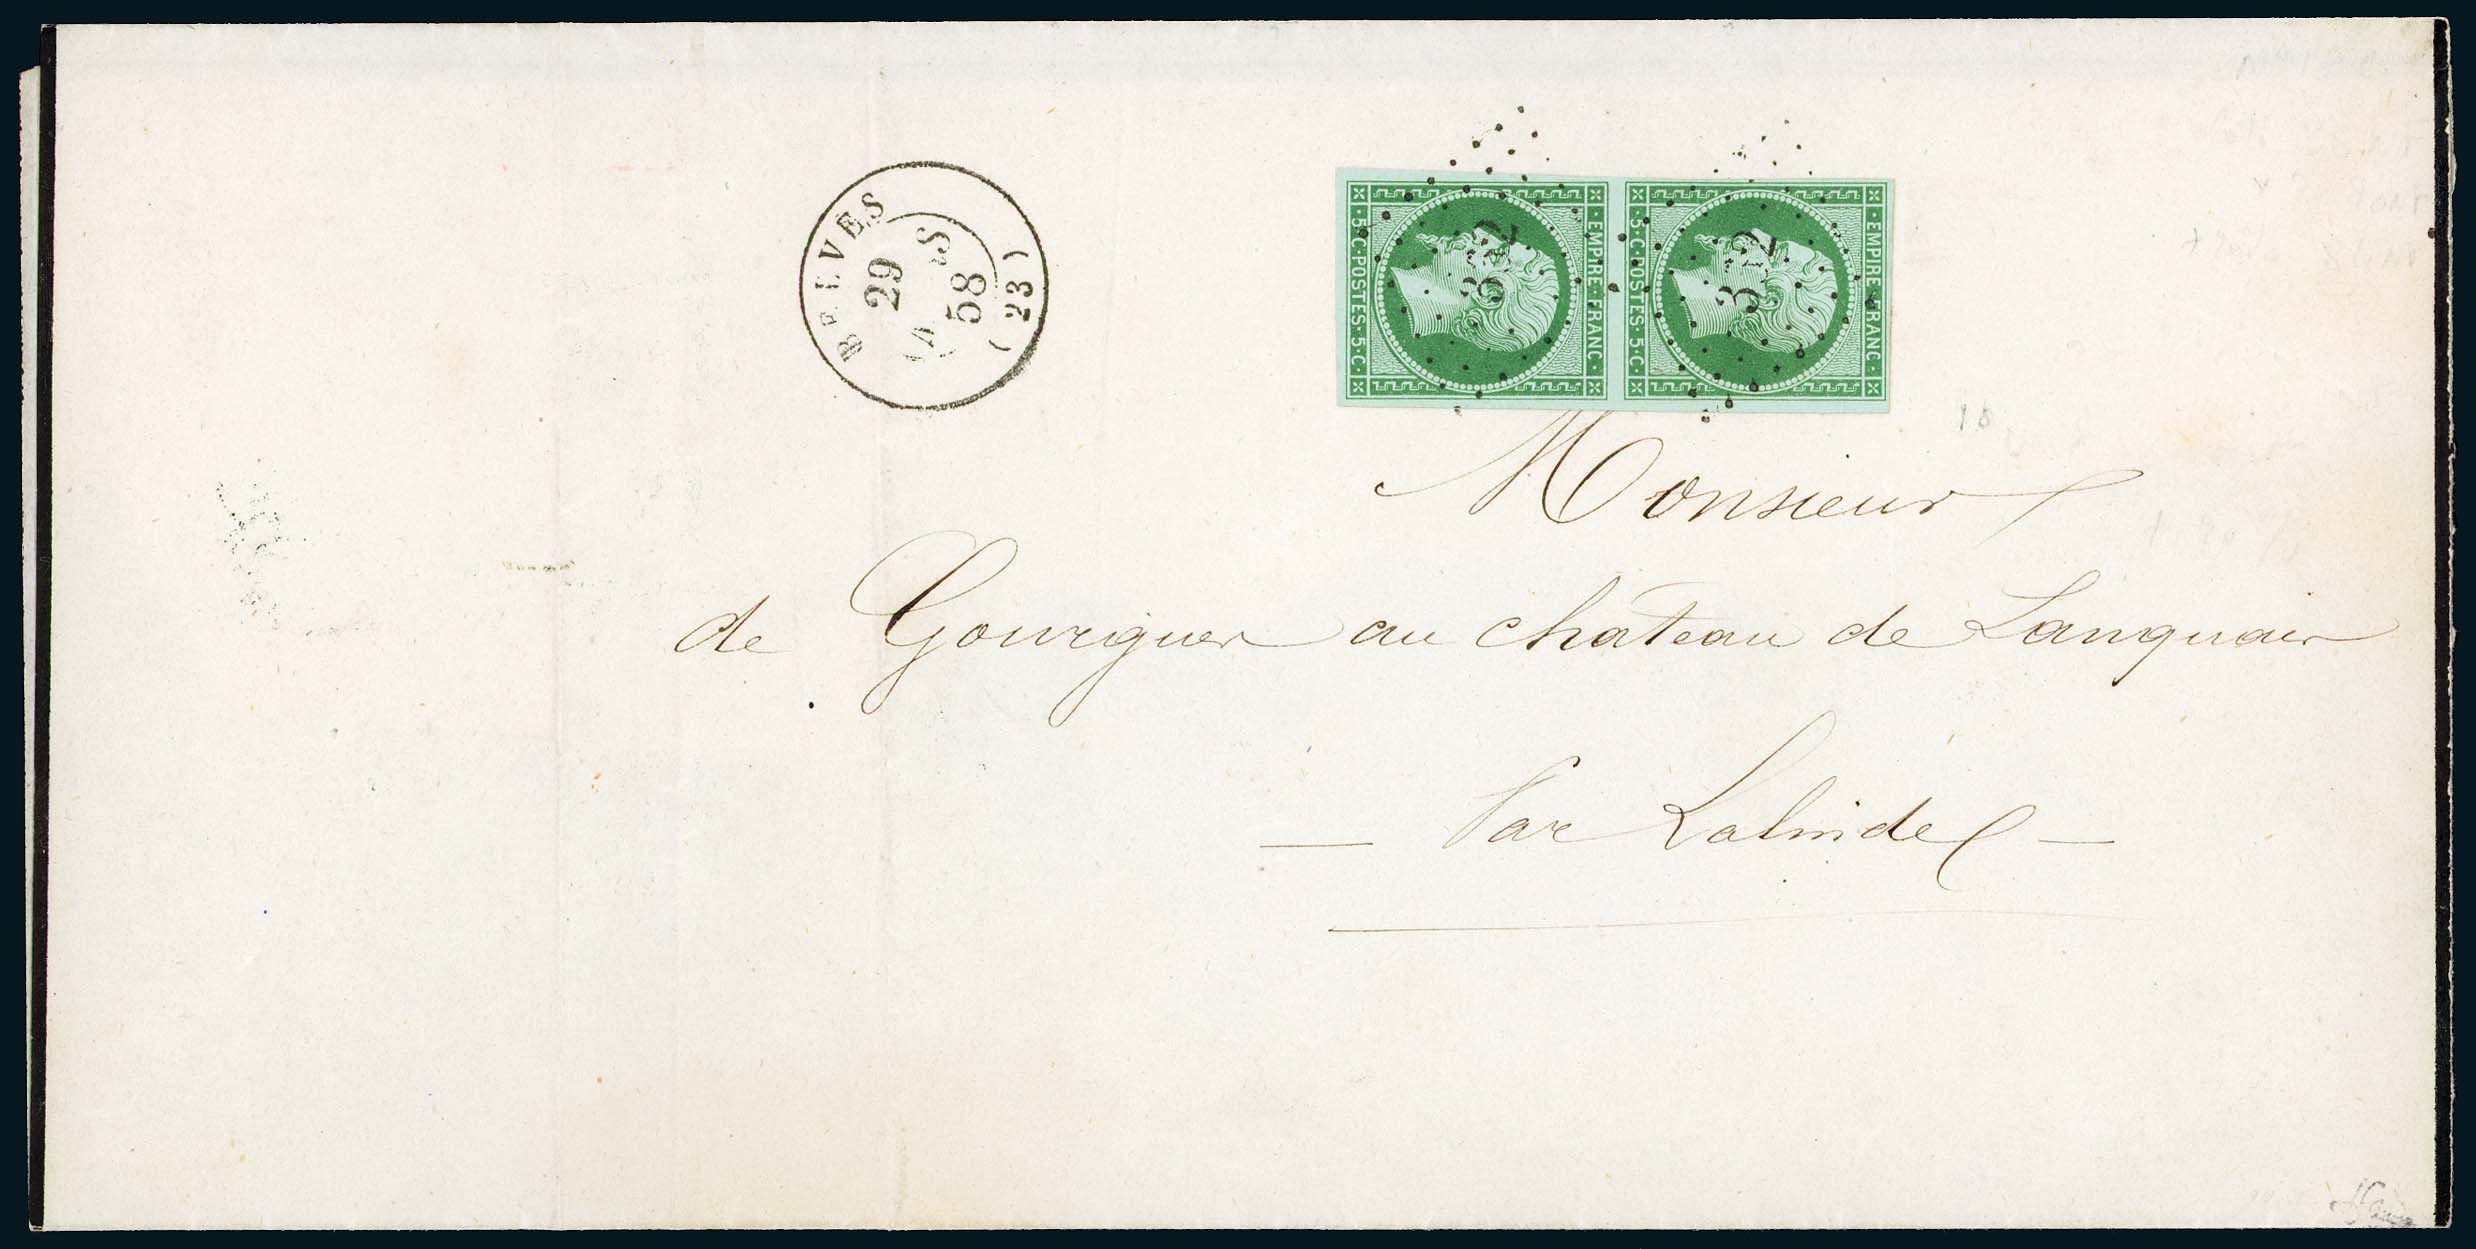 BELVES
29
S
58
(23)
EMPIRE · FRANC ·
· 5 · C · POSTES · 5 · C ·
EMPIRE · FRANC ·
· 5 · C · POSTES · 5 · C ·
3
312
Monsieur
de Gourgues au chateau de Lanquais
Par Lalinde